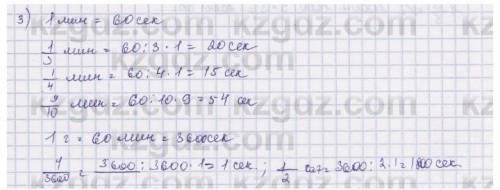 3) 1 мин = 60 сек
1/3 мин = 60 : 3 · 1 = 20 сек
1/4 мин = 60 : 4 · 1 = 15 сек
9/10 мин = 60 : 10 · 9 = 54 сек
1 г = 60 мин = 3600 сек
= 3600 : 3600 · 1 = 1 сек ; 1/2 = 3600 : 2 · 1 = 1800 сек